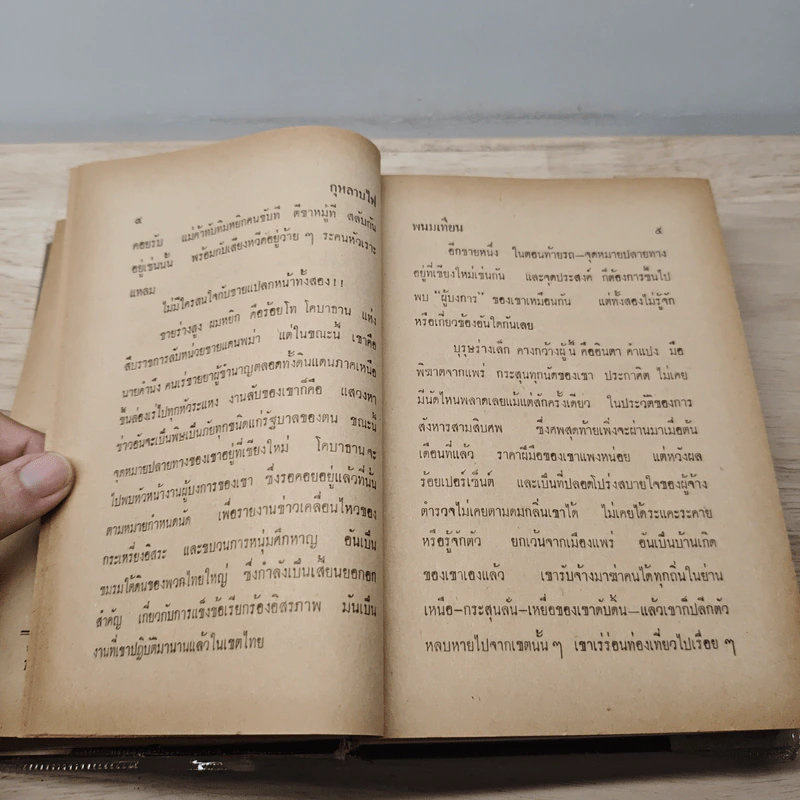 กุหลาบไฟ
๔
คอยรับ แม่ค้าทับทิมหยิกคนขับที ตีขาหมู่ที่ สลับกัน
อยู่เช่นนั้น พร้อมกับเสียงหวีดอยู่ว้าย ๆ ระคนหัวเราะ
แหลม
ไม่มีใครสนใจกับชายแปลกหน้าทั้งสอง!!
ชายร่างสูง ผมหยิก คือร้อยโท โคบาธาน แห่ง
สืบราชการลับหน่วยชายแดนพม่า แต่ในขณะนี้ เขาคือ
นายคำนึง คนเร่ขายยาผู้ชำนาญตลอดทั้งดินแดนภาคเหนือ
ขึ้นล่องเร่ไปทุกหัวระแหง งานลับของเขาก็คือ แสวงหา
ข่าวอันจะเป็นพิษเป็นภัยทุกชนิดแก่รัฐบาลของตน ขณะนี้
จุดหมายปลายทางของเขาอยู่ที่เชียงใหม่ โคบาธานจะ
ไปพบหัวหน้างานผู้บงการของเขา ซึ่งรอคอยอยู่แล้วที่นั้น
ตามหมายกำหนดนัด เพื่อรายงานข่าวเคลื่อนไหวของ
กระเหรี่ยงอิสระ และขบวนการหนุ่มศึกหาญ อันเป็น
ชมรมใต้ดินของพวกไทยใหญ่ ซึ่งกำลังเป็นเสี้ยนยอกอก
สำคัญ เกี่ยวกับการแข็งข้อเรียกร้องอิสรภาพ มันเป็น
งานที่เขาปฏิบัติมานานแล้วในเขตไทย
พนมเทียน
๕
อีกชายหนึ่ง ในตอนท้ายรถ—จุดหมายปลายทาง
อยู่ที่เชียงใหม่เช่นกัน และจุดประสงค์ ก็ต้องการขึ้นไป
พบ “ผู้บงการ” ของเขาเหมือนกัน แต่ทั้งสองไม่รู้จัก
หรือเกี่ยวข้องอันใดกันเลย
บุรุษร่างเล็ก คางกว้างผู้นี้ คืออินตา คำแปง มือ
พิฆาตจากแพร่ กระสุนทุกนัดของเขา ประกาศิต ไม่เคย
มีนัดไหนพลาดเลยแม้แต่สักครั้งเดียว ในประวัติของการ
สังหารสามสิบศพ ซึ่งศพสุดท้ายเพิ่งจะผ่านมาเมื่อต้น
เดือนที่แล้ว ราคาฝีมือของเขาแพงหน่อย แต่หวังผล
ร้อยเปอร์เซ็นต์ และเป็นที่ปลอดโปร่งสบายใจของผู้จ้าง
ตำรวจไม่เคยตามดมกลิ่นเขาได้ ไม่เคยได้ระแคะระคาย
หรือรู้จักตัว ยกเว้นจากเมืองแพร่ อันเป็นบ้านเกิด
ของเขาเองแล้ว เขารับจ้างมาฆ่าคนได้ทุกถิ่นในย่าน
เหนือ—กระสุนลั่น—เหยื่อของเขาดับดิ้น—แล้วเขาก็ปลีกตัว
หลบหายไปจากเขตนั้น ๆ เขาเร่ร่อนท่องเที่ยวไปเรื่อย ๆ